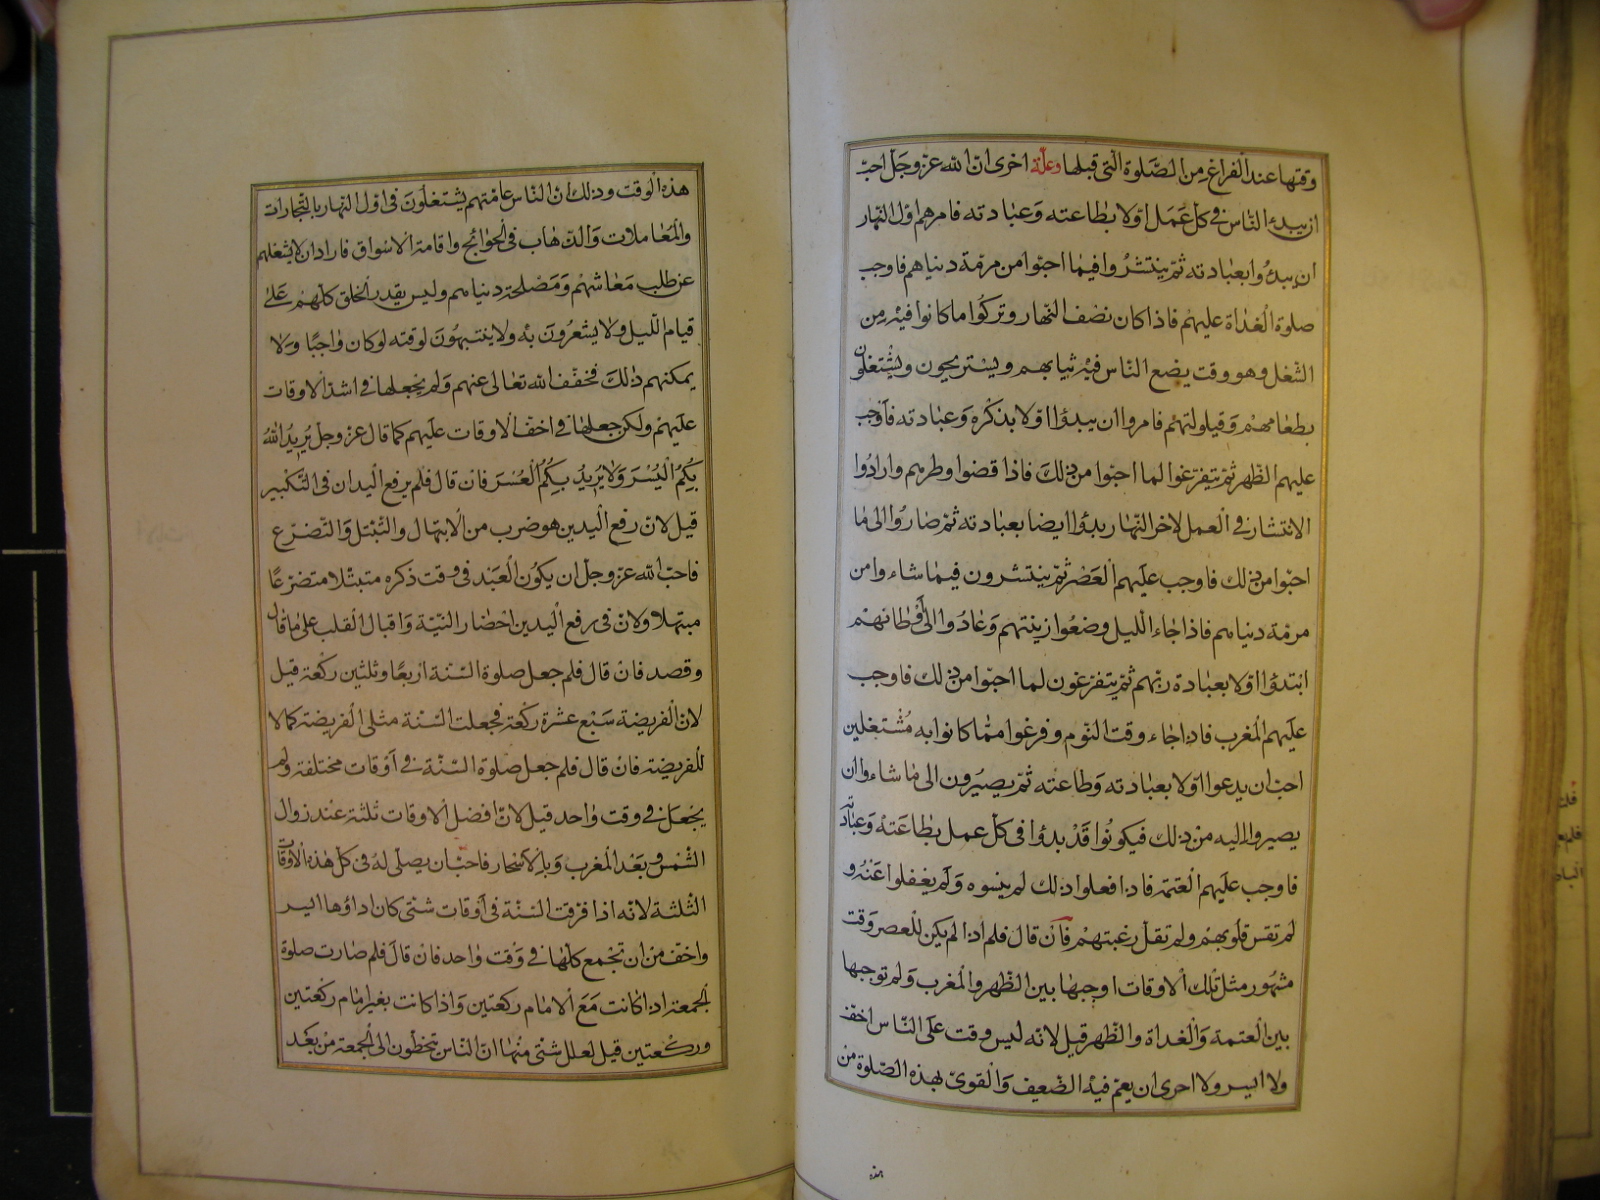 وقتها عند الفراغ من الصّلوة الّتى قبلها وعلّة اخرى انّ الله عزّ وجلّ احبّ
ان يبدء النّاس فى كلّ عمل اوّلا بطاعته وعبادته فامرهم اوّل النّهار
ان يبدؤا بعبادته ثمّ ينتشروا فيما احبّوا من مرمّة دنياهم فاوجب
صلوة الغداة عليهم فاذا كان نصف النّهار وتركوا ما كانوا فيه من
الشّغل وهو وقت يضع النّاس فيه ثيابهم ويستريحون ويشتغلون
بطعامهم وقيلولتهم فامروا ان يبدؤا اوّلا بذكره وعبادته فاوجب
عليهم الظّهر ثمّ يتفرّغوا لما احبّوا من ذلك فاذا قضوا وطرهم وارادوا
الانتشار فى العمل لاخر النّهار بدؤا ايضا بعبادته ثمّ صاروا الى ما
احبّوا من ذلك فاوجب عليهم العصر ثمّ ينتشرون فيما شاءوا من
مرمّة دنياهم فاذا جاء اللّيل وضعوا زينتهم وعادوا الى اوطانهم
ابتدؤا اوّلا بعبادة ربّهم ثمّ يتفرّغون لما احبّوا من ذلك فاوجب
عليهم المغرب فاذا جاء وقت النّوم وفرغوا ممّا كانوا به مشتغلين
احبّ ان يدعوا اوّلا بعبادته وطاعته ثمّ يصيرون الى ما شاءوا ان
يصيروا اليه من ذلك فيكونوا قد بدؤا فى كلّ عمل بطاعته وعبادته
فاوجب عليهم العتمة فاذا فعلوا ذلك لم ينسوه ولم يغفلوا عنه و
لم تقس قلوبهم ولم تقلّ رغبتهم فان قال فلم اذا لم يكن للعصر وقت
مشهور مثل تلك الاوقات اوجبها بين الظّهر والمغرب ولم توجبها
بين العتمة والغداة والظّهر قيل لانّه ليس وقت على النّاس اخفّ
ولا ايسر ولا احرى ان يعمّ فيه الضّعيف والقوىّ بهذه الصّلوة من
هذه
هذه الوقت وذلك انّ النّاس عامّتهم يشتغلون فى اوّل النّهار بالتّجارات
والمعاملات والذّهاب فى الحوائج واقامة الاسواق فاراد ان لا يشغلهم
عن طلب معاشهم ومصلحة دنياهم وليس يقدر الخلق كلّهم على
قيام اللّيل ولا يشعرون به ولا ينتبهون لوقته لو كان واجبًا ولا
يمكنهم ذلك فخفّف الله تعالى عنهم ولم يجعلها فى اشدّ الاوقات
عليهم ولكن جعلها فى اخفّ الاوقات عليهم كما قال عزّ وجلّ يريد الله
بكم اليسر ولا يريد بكم العسر فان قال فلم يرفع اليدان فى التّكبير
قيل لانّ رفع اليدين هو ضرب من الابتهال والتّبتّل والتّضرّع
فاحبّ الله عزّ وجلّ ان يكون العبد فى وقت ذكره متبتّلا متضرّعًا
مبتهلا ولانّ فى رفع اليدين احضار النيّة واقبال القلب على ما قال
وقصد فان قال فلم جعل صلوة السّنة اربعًا وثلثين ركعة قيل
لانّ الفريضة سبع عشرة ركعة فجعلت السّنة مثلى الفريضة كمالا
للفريضة فان قال فلم جعل صلوة السّنّة فى اوقات مختلفة ولم
يجعل فى وقت واحد قيل لانّ افضل الاوقات ثلثة عند زوال
الشّمس وبعد المغرب وبالاسحار فاحبّ ان يصلّى له فى كلّ هذه الاوقات
الثّلثة لانّه اذا فرّقت السّنّة فى اوقات شتّى كان اداؤها ايسر
واخفّ من ان تجمع كلّها فى وقت واحد فان قال فلم صارت صلوة
الجمعة اذا كانت مع الامام ركعتين واذا كانت بغير امام ركعتين
وركعتين قيل لعلل شتّى منها انّ النّاس يتخطّون الى الجمعة من بعد